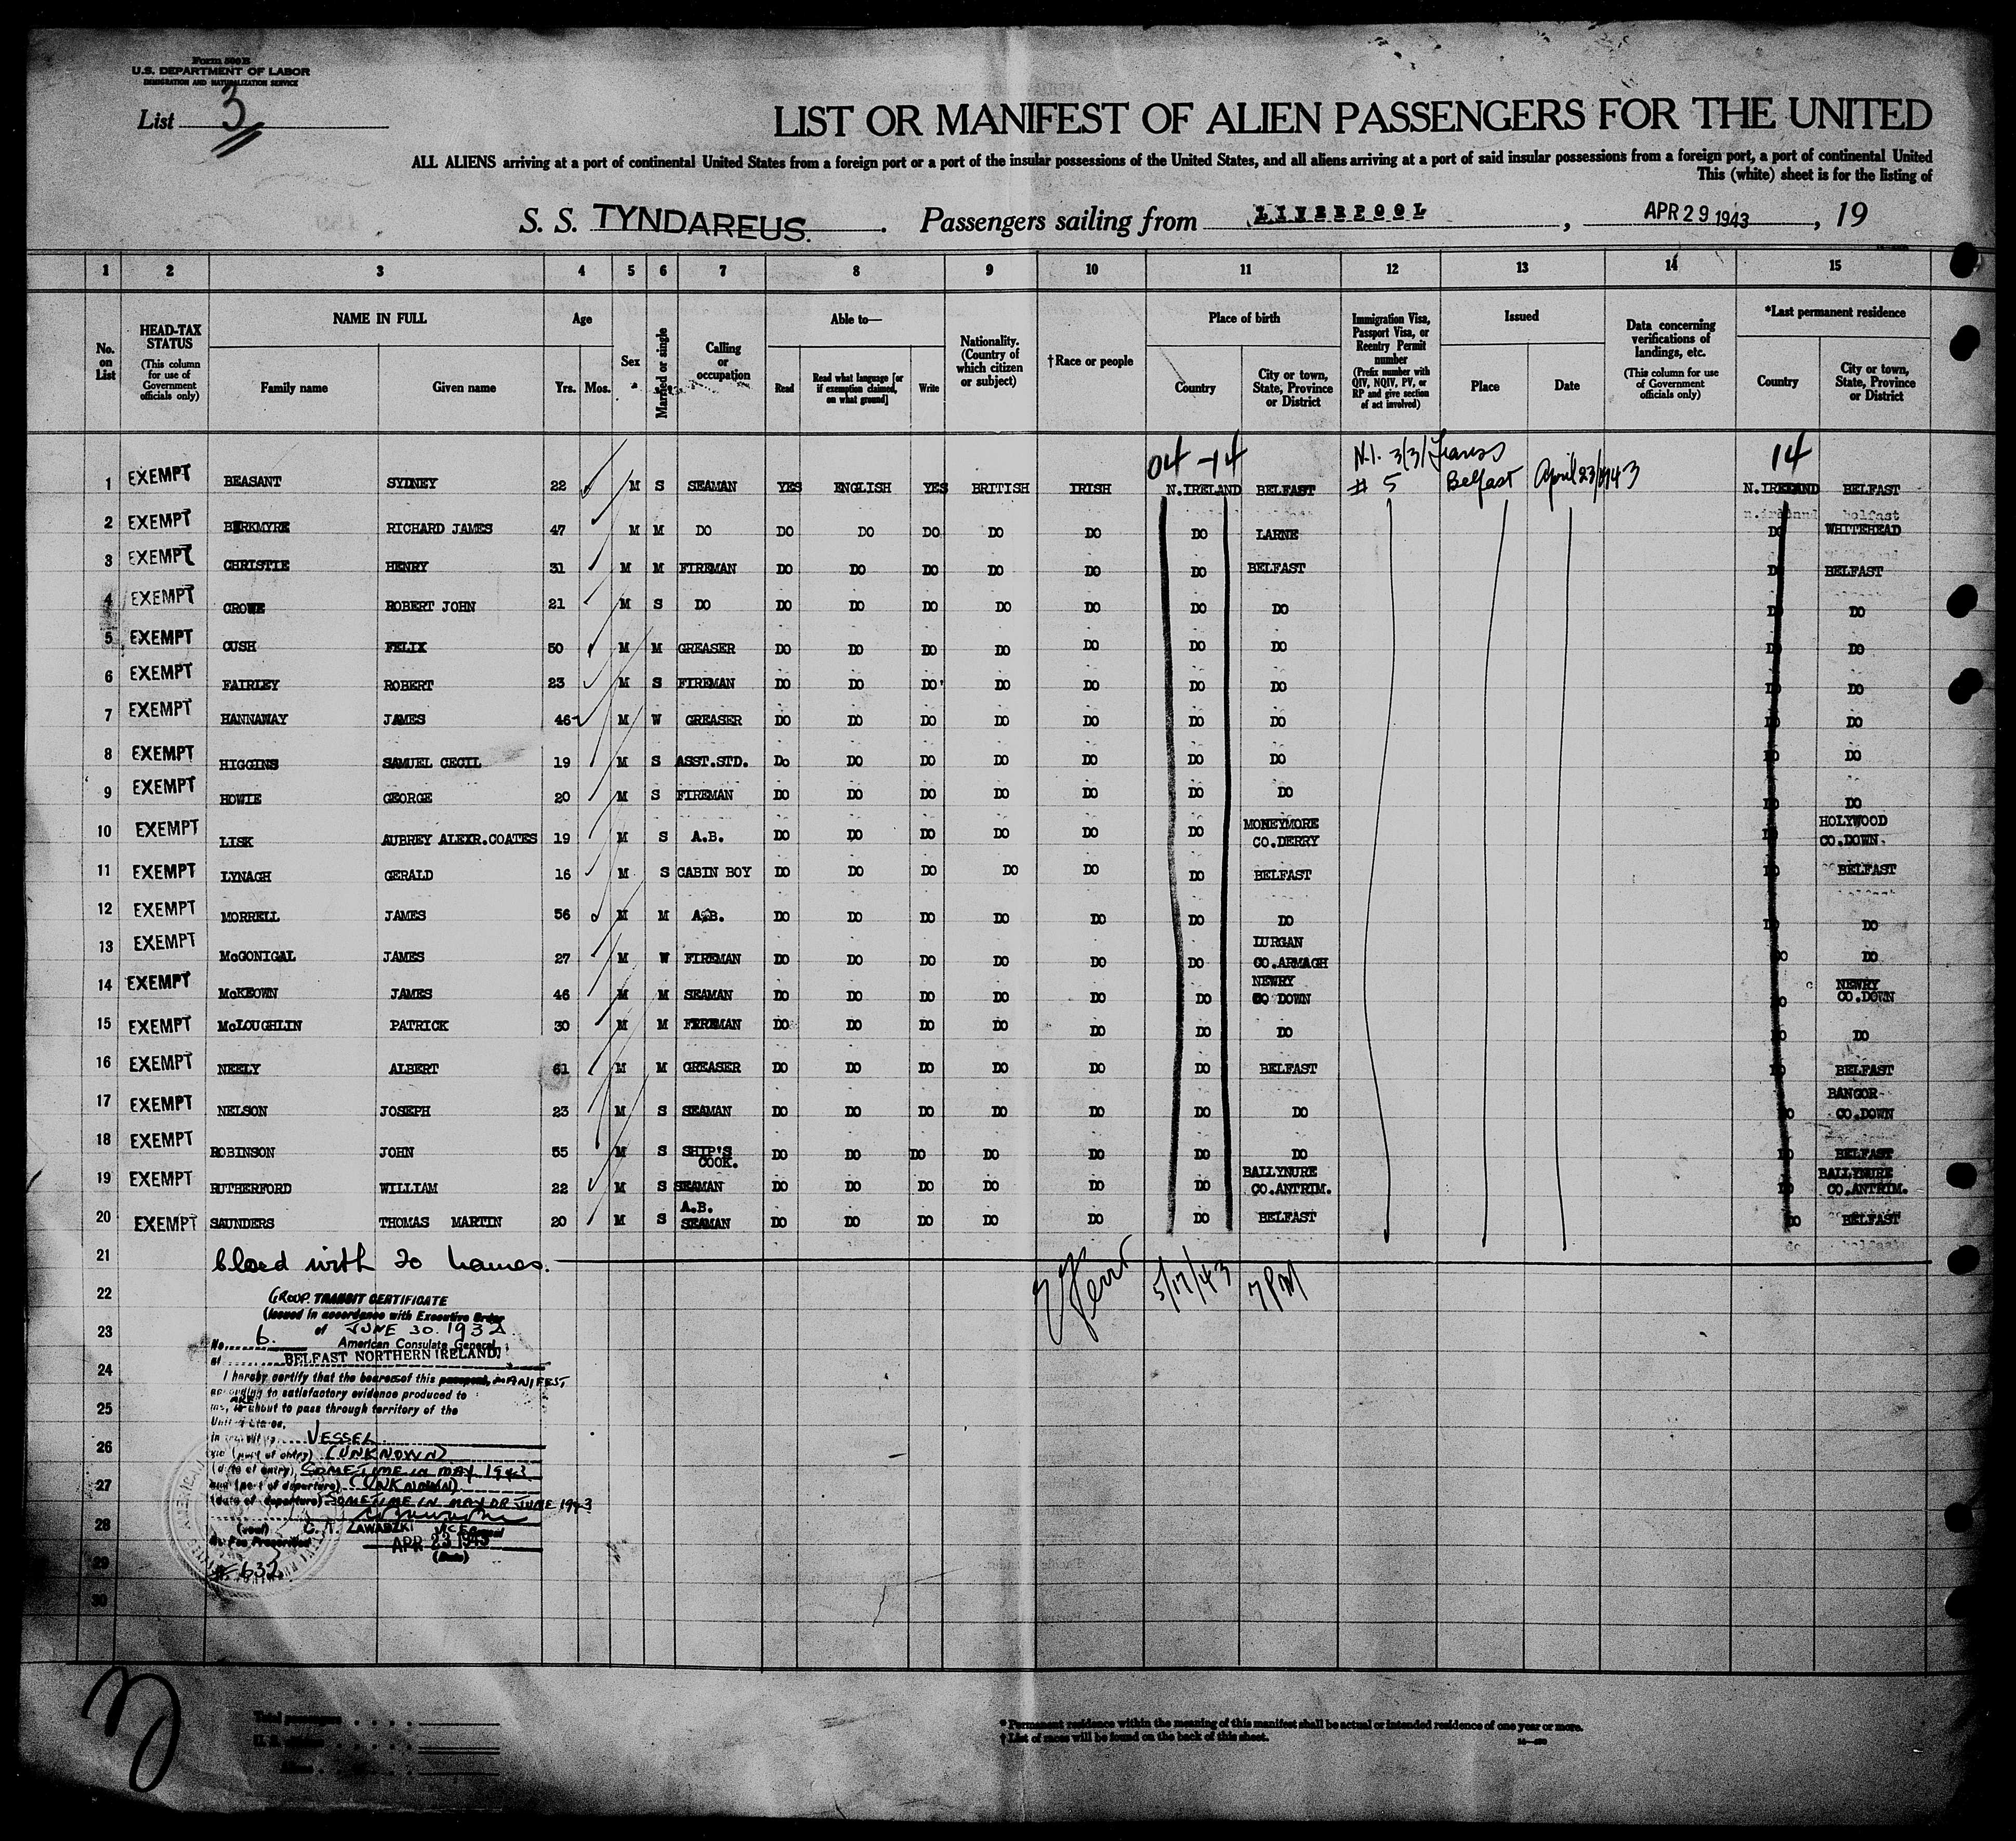 Form 500 B
U.S. DEPARTMENT OF LABOR
IMMIGRATION AND NATURALIZATION SERVICE
List 3
LIST OR MANIFEST OF ALIEN PASSENGERS FOR THE UNITED
ALL ALIENS arriving at a port of continental United States from a foreign port or a port of the insular possessions of the United States, and all aliens arriving at a port of said insular possessions from a foreign port, a port of continental United
This (white) sheet is for the listing of
S. S. TYNDAREUS. Passengers sailing from LIVERPOOL, APR 29 1943, 19
1 2 3 4 5 6 7 8 9 10 11 12 13 14 15
No. on List
HEAD-TAX STATUS (This column for use of Government officials only)
NAME IN FULL
Family name Given name
Age
Yrs. Mos.
Sex
Married or single
Calling or occupation
Able to—
Read Read what language [or if exemption claimed, on what ground] Write
Nationality. (Country of which citizen or subject)
†Race or people
Place of birth
Country City or town, State, Province or District
Immigration Visa, Passport Visa, or Reentry Permit number (Prefix number with QIV, NQIV, PV, or RP and give section of act involved)
Issued
Place Date
Data concerning verifications of landings, etc. (This column for use of Government officials only)
*Last permanent residence
Country City or town, State, Province or District
04 -14 N.I. 3/3/ 14
1 EXEMPT BEASANT SYDNEY 22 M S SEAMAN YES ENGLISH YES BRITISH IRISH N.IRELAND BELFAST # 5 Belfast April 23/1943 N.IRELAND BELFAST
2 EXEMPT BERKMYRE RICHARD JAMES 47 M M DO DO DO DO DO DO DO LARNE DO WHITEHEAD
3 EXEMPT CHRISTIE HENRY 31 M M FIREMAN DO DO DO DO DO DO BELFAST DO BELFAST
4 EXEMPT CROWE ROBERT JOHN 21 M S DO DO DO DO DO DO DO DO DO DO
5 EXEMPT CUSH FELIX 50 M M GREASER DO DO DO DO DO DO DO DO DO
6 EXEMPT FAIRLEY ROBERT 23 M S FIREMAN DO DO DO DO DO DO DO DO DO
7 EXEMPT HANNAWAY JAMES 46 M W GREASER DO DO DO DO DO DO DO DO DO
8 EXEMPT HIGGINS SAMUEL CECIL 19 M S ASST.STD. Do DO DO DO DO DO DO DO DO
9 EXEMPT HOWIE GEORGE 20 M S FIREMAN DO DO DO DO DO DO DO DO DO
10 EXEMPT LISK AUBREY ALEXR.COATES 19 M S A.B. DO DO DO DO DO DO MONEYMORE CO.DERRY DO HOLYWOOD CO.DOWN.
11 EXEMPT LYNAGH GERALD 16 M S CABIN BOY DO DO DO DO DO DO BELFAST DO BELFAST
12 EXEMPT MORRELL JAMES 56 M M A.B. DO DO DO DO DO DO DO DO DO
13 EXEMPT McGONIGAL JAMES 27 M W FIREMAN DO DO DO DO DO DO LURGAN CO.ARMAGH DO DO
14 EXEMPT McKEOWN JAMES 46 M M SEAMAN DO DO DO DO DO DO NEWRY CO DOWN DO NEWRY CO.DOWN
15 EXEMPT McLOUGHLIN PATRICK 30 M M FIREMAN DO DO DO DO DO DO DO DO DO
16 EXEMPT NEELY ALBERT 61 M M GREASER DO DO DO DO DO DO BELFAST DO BELFAST
17 EXEMPT NELSON JOSEPH 23 M S SEAMAN DO DO DO DO DO DO DO DO BANGOR CO.DOWN
18 EXEMPT ROBINSON JOHN 55 M S SHIP'S COOK. DO DO DO DO DO DO DO DO BELFAST
19 EXEMPT RUTHERFORD WILLIAM 22 M S SEAMAN DO DO DO DO DO DO BALLYNURE CO.ANTRIM. DO BALLYNURE CO.ANTRIM.
20 EXEMPT SAUNDERS THOMAS MARTIN 20 M S A.B. SEAMAN DO DO DO DO DO DO BELFAST DO BELFAST
21 Closed with 20 names. 5/17/43 7 PM
22 GROUP TRANSIT CERTIFICATE
(Issued in accordance with Executive Order
23 of JUNE 30. 1932.
No. 6. American Consulate General
at BELFAST NORTHERN IRELAND.
24 I hereby certify that the bearers of this passport, MANIFEST,
according to satisfactory evidence produced to
25 me, is ARE about to pass through territory of the
United States,
in transit VESSEL
26 via (port of entry) (UNKNOWN)
(date of entry) SOMETIME IN MAY 1943
27 and (port of departure) (UNKNOWN)
(date of departure) SOMETIME IN MAY OR JUNE 1943
28 (seal) ZAWADZKI
No Fee Prescribed APR 23 1943
29 (Date)
# 632
30
Total passengers
U. S. citizens
Aliens
* Permanent residence within the meaning of this manifest shall be actual or intended residence of one year or more.
† List of races will be found on the back of this sheet.